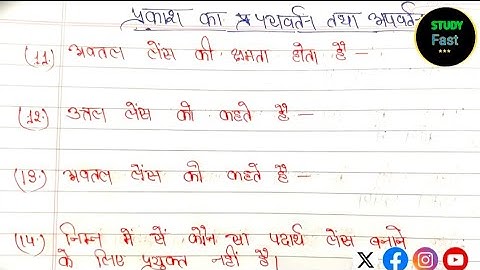 प्रकाश का परावर्तन तथा अपवर्तन
STUDY
Fast
(11.) अवतल लेंस की क्षमता होता है —
(12.) उत्तल लेंस को कहते हैं —
(13.) अवतल लेंस को कहते हैं —
(14.) निम्न में सें कौन सा पदार्थ लेंस बनाने
के लिए प्रयुक्त नहीं है।